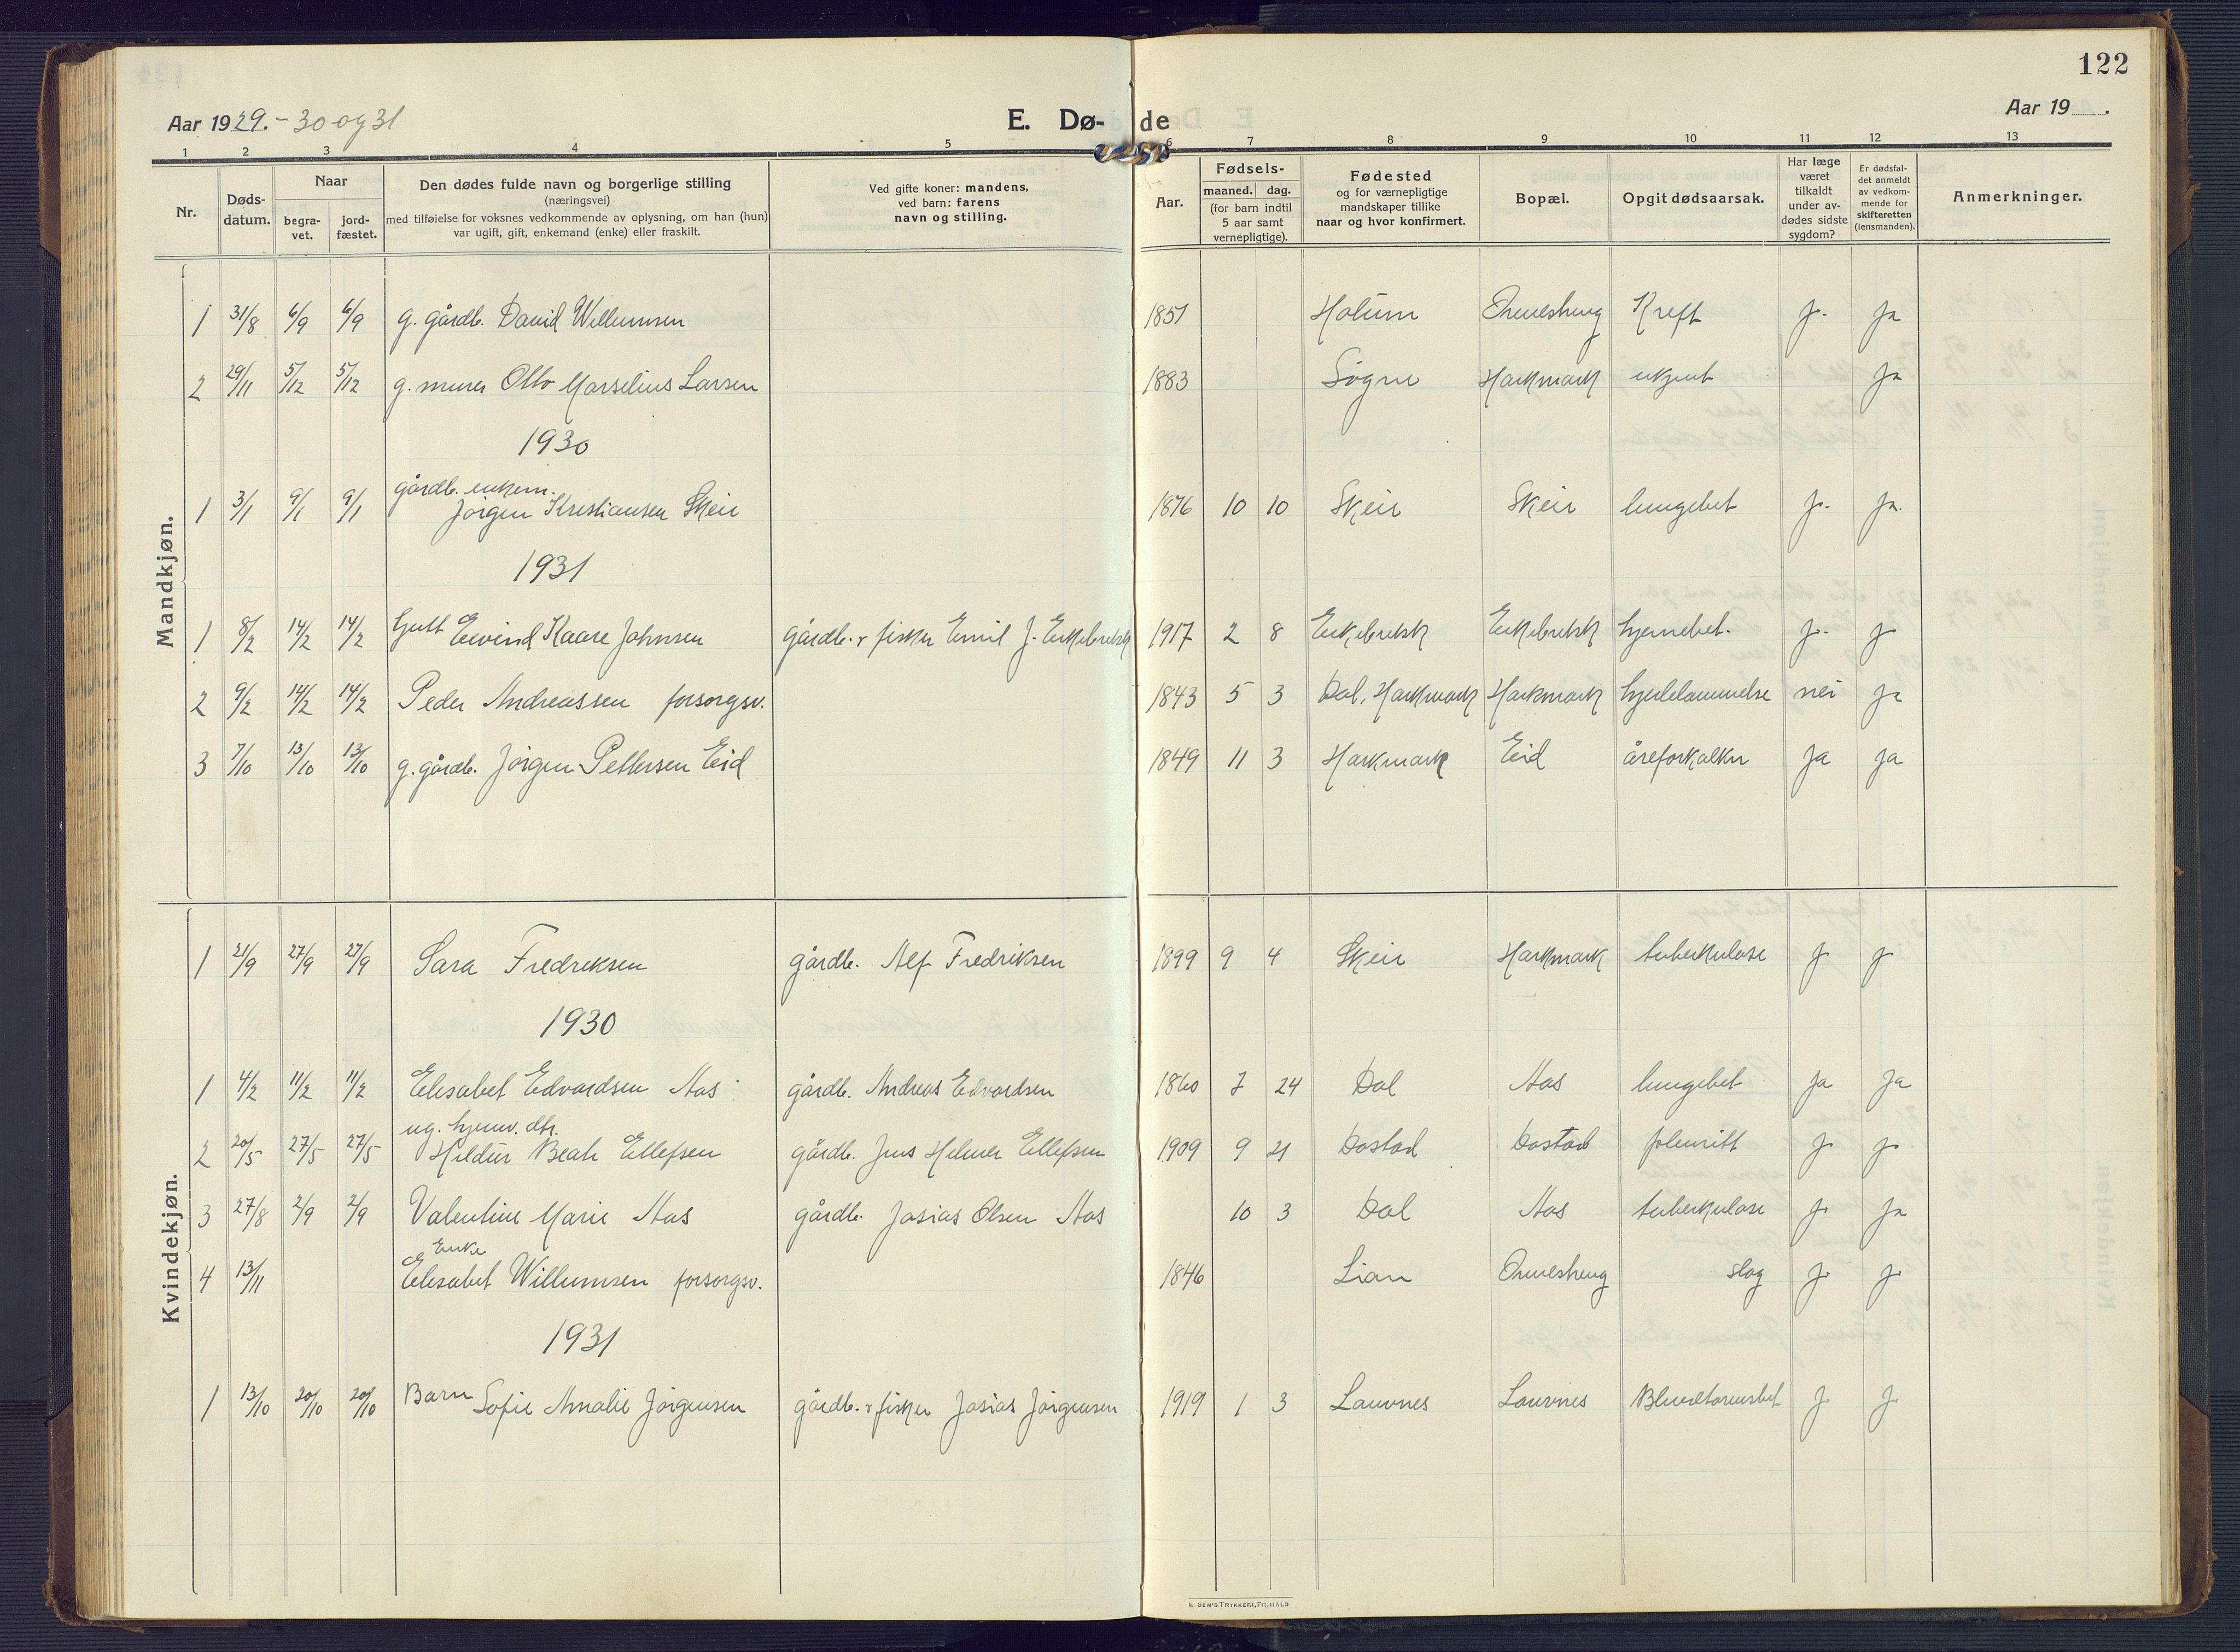 122
Aar 1929. - 30 og 31
E. Dø- de
Aar 19 .
1 2 3 4 5 6 7 8 9 10 11 12 13
Nr.
Døds-
datum.
Naar
begra-
vet.
jord-
fæstet.
Den dødes fulde navn og borgerlige stilling
(næringsvei)
med tilføielse for voksnes vedkommende av oplysning, om han (hun)
var ugift, gift, enkemand (enke) eller fraskilt.
Ved gifte koner: mandens,
ved barn: farens
navn og stilling.
Aar.
Fødsels-
maaned. dag.
(for barn indtil
5 aar samt
vernepligtige).
Fødested
og for værnepligtige
mandskaper tillike
naar og hvor konfirmert.
Bopæl.
Opgit dødsaarsak.
Har læge
været
tilkaldt
under av-
dødes sidste
sygdom?
Er dødsfal-
det anmeldt
av vedkom-
mende for
skifteretten
(lensmanden).
Anmerkninger.
Mandkjøn.
1 31/8 6/9 6/9 g. gårdb. David Willumsen 1851 Holum Ormesheug Kreft j. ja
2 29/11 5/12 5/12 g. murer Otto Marselius Larsen 1883 Søgne Harkmark ukjent ja
1930
gårdb. enkem.
1 3/1 9/1 9/1 Jørgen Kristiansen Skeie 1876 10 10 Skeie Skeie lungebet j. ja.
1931
1 8/2 14/2 14/2 Gutt Eivind Kaare Johnsen gårdb. & fisker Emil J. Enkebretsk 1917 2 8 Enkebretsk Enkebretsk hjernebet. j. j
2 9/2 14/2 14/2 Peder Andreassen forsorgsv. 1843 5 3 Dal, Harkmark Harkmark hjertelammelse nei ja
3 7/10 13/10 13/10 g. gårdb. Jørgen Pettersen Eid 1849 11 3 Harkmark Eid åreforkalkn ja ja
Kvindekjøn.
1 21/9 27/9 27/9 Sara Fredriksen gårdb. Alf Fredriksen 1899 9 4 Skeie Harkmark tuberkulose j j
1930
1 4/2 11/2 11/2 Elisabet Edvardsen Aas gårdb. Andreas Edvardsen 1860 7 24 Dal Aas lungebet ja ja
ug. hjemv. dtr.
2 20/5 27/5 27/5 Hildur Beate Ellefsen gårdb. Jens Helmer Ellefsen 1909 9 21 Dostad Dostad plevritt j. j.
3 27/8 2/9 2/9 Valentine Marie Aas gårdb. Josias Olsen Aas 10 3 Dal Aas tuberkulose j. ja
Enke
4 13/11 Elisabet Willumsen forsorgsv. 1846 Lian Ormesheug slag j. j.
1931
1 13/10 20/10 20/10 Barn Sofie Amalie Jørgensen gårdb. & fisker Josias Jørgensen 1919 1 3 Lauvnes Lauvnes Blindtarmsbet j. j.
E. SEM'S TRYKKERI, FR.HALD